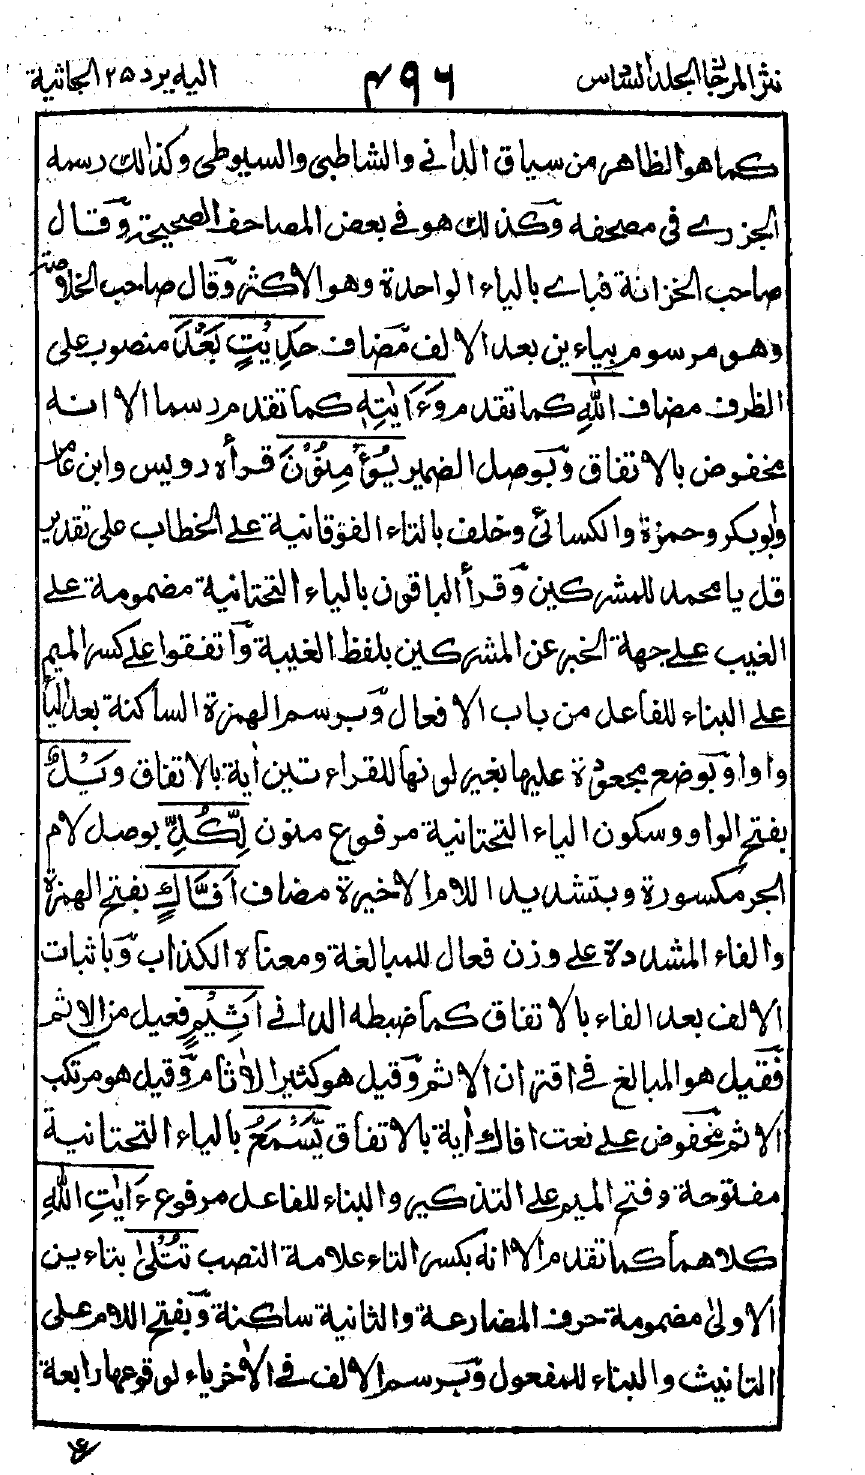 نثر المرجان الجلد السادس ٤٩٦ اليه يرد ٢٥ الجاثية
كما هو الظاهر من سياق الداني والشاطبي والسيوطي وكذالك رسمه
الجزري في مصحفه وكذلك هو في بعض المصاحف الصحيحة وقال
صاحب الخزانة فباي بالياء الواحدة وهو الاكثر وقال صاحب الخلاصة
وهو مرسوم بياءين بعد الالف مضاف حَدِيثٍ بَعْدَ منصوب على
الظرف مضاف اللهِ كما تقدم وَءَايٰتِهٖ كما تقدم رسما الا انه
مخفوض بالاتفاق وبوصل الضمير يُؤْمِنُوْنَ قرأه رويس وابن عامر
وابوبكر وحمزة والكسائي وخلف بالتاء الفوقانية على الخطاب على تقدير
قل يا محمد للمشركين وقرأ الباقون بالياء التحتانية مضمومة على
الغيب على جهة الخبر عن المشركين بلفظ الغيبة واتفقوا على كسر الميم
على البناء للفاعل من باب الافعال وبرسم الهمزة الساكنة بعد الياء
واوا وبوضع مجعودة عليها بغير لونها للقراءتين أية بالاتفاق وَيْلٌ
بفتح الواو وسكون الياء التحتانية مرفوع منون لِّكُلِّ بوصل لام
الجر مكسورة وبتشديد اللام الاخيرة مضاف اَفَّاكٍ بفتح الهمزة
والفاء المشددة على وزن فعال للمبالغة ومعناه الكذاب وباثبات
الالف بعد الفاء بالاتفاق كما ضبطه الداني اَثِيْمٍ فعيل من الاثم
فقيل هو المبالغ في اقتران الاثم وقيل هو كثير الاثام وقيل هو مرتكب
الاثم مخفوض على نعت افاك أية بالاتفاق يَّسْمَعُ بالياء التحتانية
مفتوحة وفتح الميم على التذكير والبناء للفاعل مرفوع ءَايٰتِ اللهِ
كلاهما كما تقدم الا انه بكسر التاء علامة النصب تُتْلىٰ بتاءين
الاولى مضمومة حرف المضارعة والثانية ساكنة وبفتح اللام على
التانيث والبناء للمفعول وبرسم الالف في الاخر ياء لوقوعها رابعة